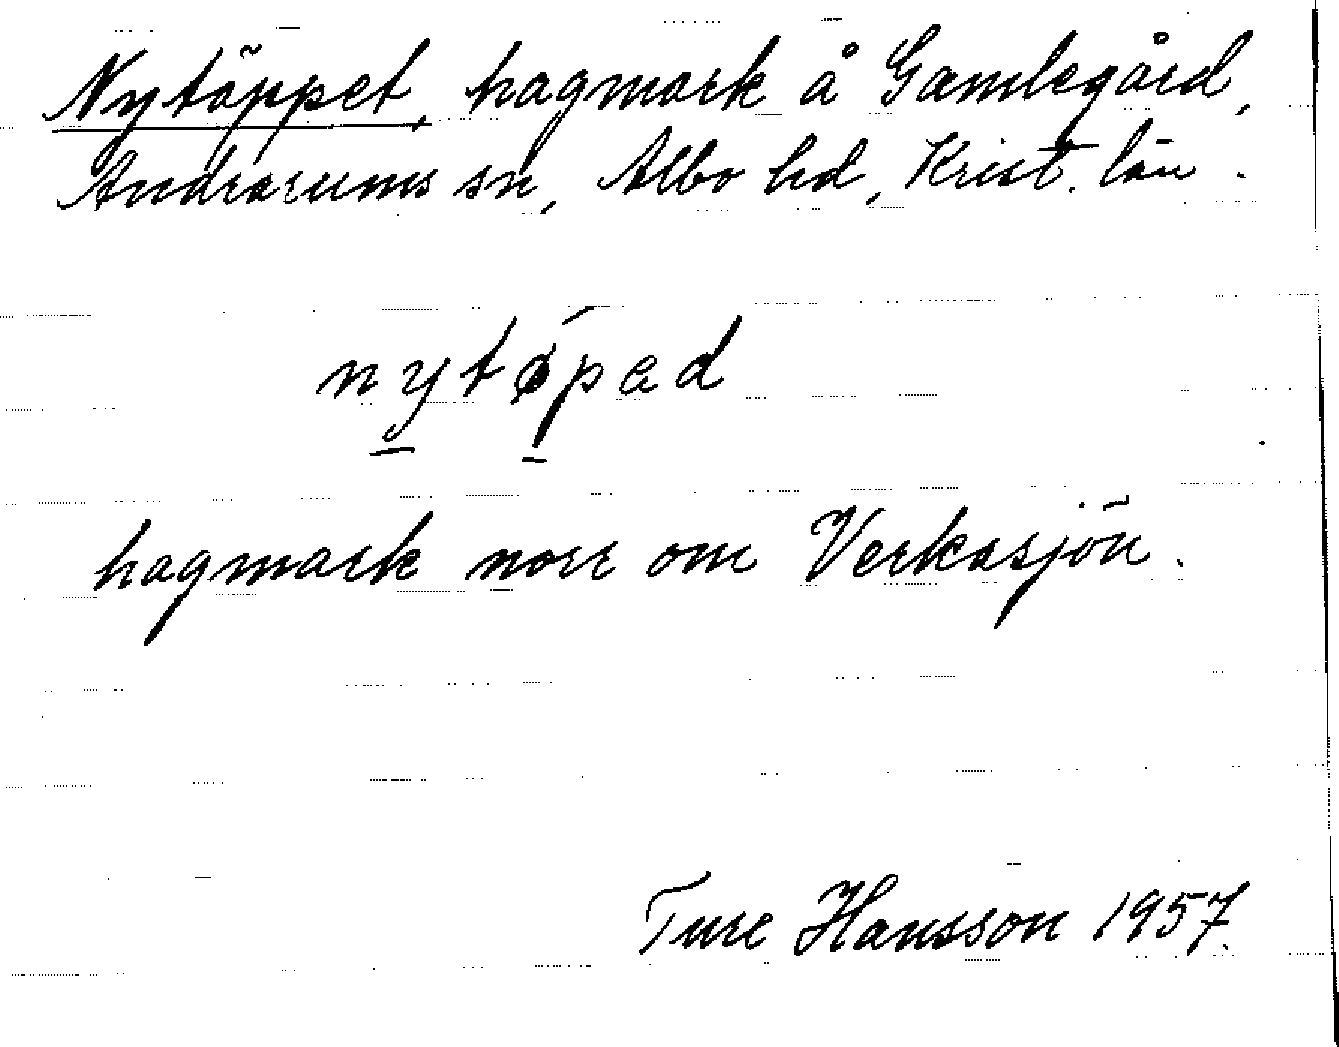 Nytäppet, hagmark å Gamlegård,
Andrarums sn, Albo hd, Krist. län.
nytǿpad
hagmark norr om Verkasjön.
Ture Hansson 1957.